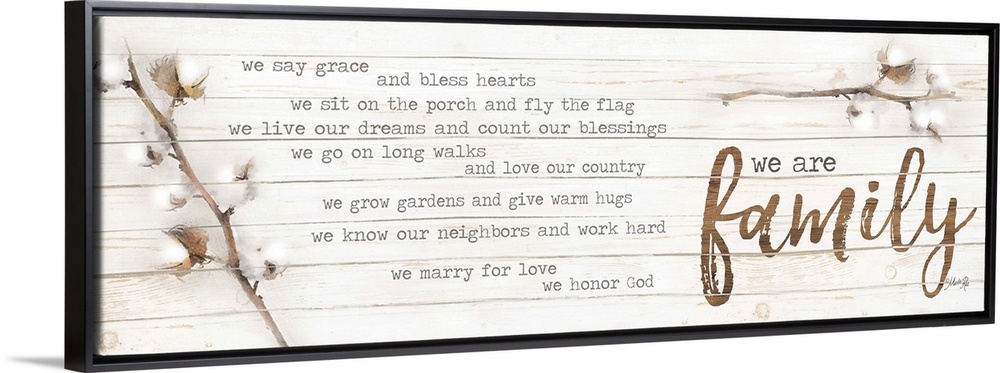 we say grace
and bless hearts
we sit on the porch and fly the flag
we live our dreams and count our blessings
we go on long walks
and love our country
we grow gardens and give warm hugs
we know our neighbors and work hard
we marry for love
we honor God
we are
family